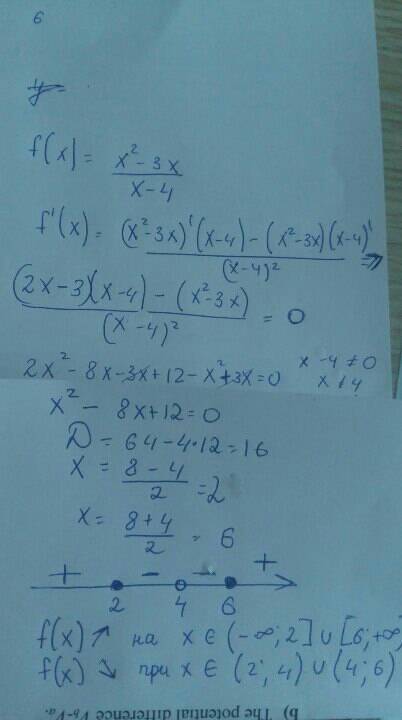 6
y=
f(x) = \frac{x^2-3x}{x-4}
f'(x) = \frac{(x^2-3x)'(x-4)-(x^2-3x)(x-4)'}{(x-4)^2} =>
\frac{(2x-3)(x-4)-(x^2-3x)}{(x-4)^2} = 0
2x^2-8x-3x+12-x^2+3x=0 x-4≠0
x≠4
x^2-8x+12=0
D=64-4·12=16
x = \frac{8-4}{2} =2
x = \frac{8+4}{2} = 6
+ - - +
2 4 6
f(x) ↗ на x ∈ (-∞; 2] ∪ [6; +∞
f(x) ↘ при x ∈ (2; 4) ∪ (4; 6)
b) The potential difference V_b-V_a.